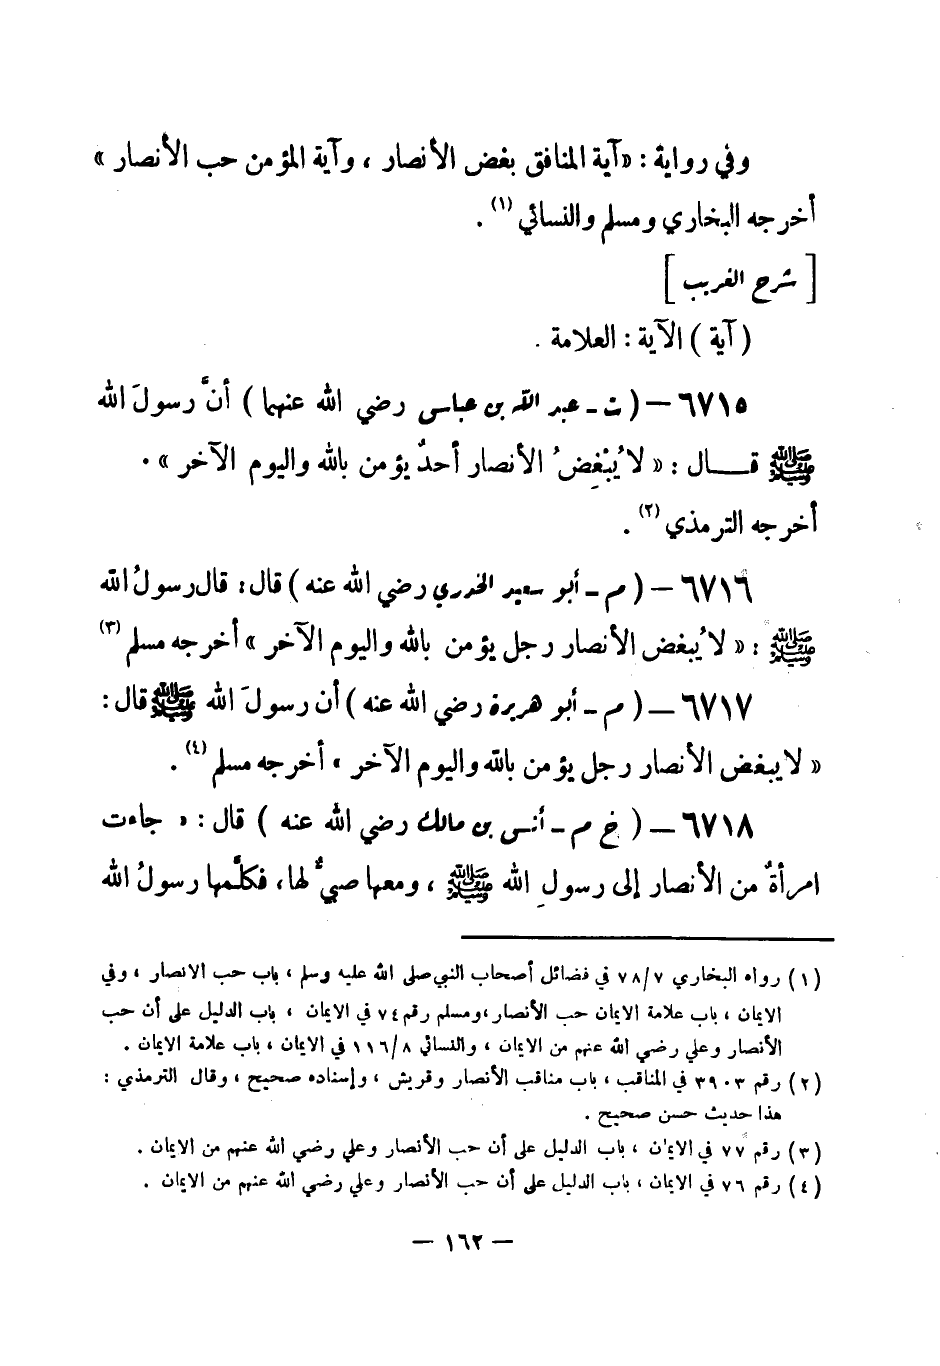 وفي رواية : «آية المنافق بغض الأنصار ، وآية المؤمن حب الأنصار »
أخرجه البخاري ومسلم والنسائي (١) .
[ شرح الغريب ]
( آية ) الآية : العلامة .
٦٧١٥ – ( ت ـ عبد الله بن عباس رضي الله عنهما ) أنَّ رسولَ الله
ﷺ قــــال : « لا يُبْغِضُ الأنصار أحدٌ يؤمن بالله واليوم الآخر » .
أخرجه الترمذي (٢) .
٦٧١٦ – ( م ـ أبو سعيد الخدري رضي الله عنه ) قال : قال رسولُ الله
ﷺ : « لا يُبغض الأنصار رجل يؤمن بالله واليوم الآخر » أخرجه مسلم (٣)
٦٧١٧ – ( م ـ أبو هريرة رضي الله عنه ) أن رسولَ الله ﷺ قال :
« لا يبغض الأنصار رجل يؤمن بالله واليوم الآخر » أخرجه مسلم (٤) .
٦٧١٨ – ( خ م ـ أنس بن مالك رضي الله عنه ) قال : « جاءت
امرأةٌ من الأنصار إلى رسولِ الله ﷺ ، ومعها صبيٌّ لها ، فكلَّمها رسولُ الله
(١) رواه البخاري ٧٨/٧ في فضائل أصحاب النبي صلى الله عليه وسلم ، باب حب الانصار ، وفي
الايمان ، باب علامة الايمان حب الأنصار ،ومسلم رقم ٧٤ في الايمان ، باب الدليل على أن حب
الأنصار وعلي رضي الله عنهم من الايمان ، والنسائي ١١٦/٨ في الايمان ، باب علامة الايمان .
(٢) رقم ٣٩٠٣ في المناقب ، باب مناقب الأنصار وقريش ، وإسناده صحيح ، وقال الترمذي :
هذا حديث حسن صحيح .
(٣) رقم ٧٧ في الايمان ، باب الدليل على أن حب الأنصار وعلي رضي الله عنهم من الايمان .
(٤) رقم ٧٦ في الايمان ، باب الدليل على أن حب الأنصار وعلي رضي الله عنهم من الايمان .
– ١٦٢ –